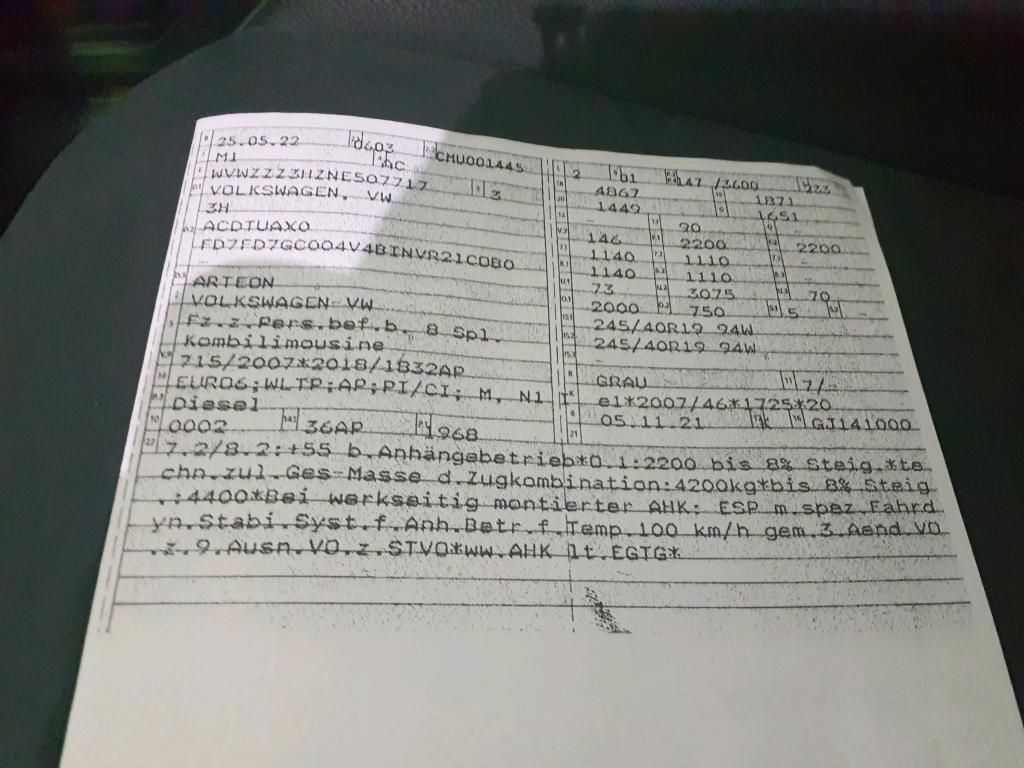 25.05.22 0603 CMU001445
M1 AC
WVWZZZ3HZNE507717 3
VOLKSWAGEN, VW
3H
ACDTUAX0
FD7FD7GC004V4BINVR21C0B0
-
ARTEON
VOLKSWAGEN-VW
Fz.z.Pers.bef.b. 8 Spl.
Kombilimousine
715/2007*2018/1832AP
EURO6;WLTP;AP;PI/CI; M, N1 I
Diesel
0002 36AP 1968
2 01 147 /3600 233
4867 1871
1449 1651
- 90 -
146 2200 2200
1140 1110 -
1140 1110 -
73 3075 70
2000 750 5 -
245/40R19 94W
245/40R19 94W
-
GRAU 7/-
e1*2007/46*1725*20
05.11.21 K GJ141000
7.2/8.2:+55 b.Anhängebetrieb*O.1:2200 bis 8% Steig.*te
chn.zul.Ges-Masse d.Zugkombination:4200kg*bis 8% Steig
.:4400*Bei werkseitig montierter AHK: ESP m.spez.Fahrd
yn.Stabi.Syst.f.Anh.Betr.f.Temp.100 km/h gem.3.Aend.VO
.z.9.Ausn.VO.z.STVO*ww.AHK lt.EGTG*